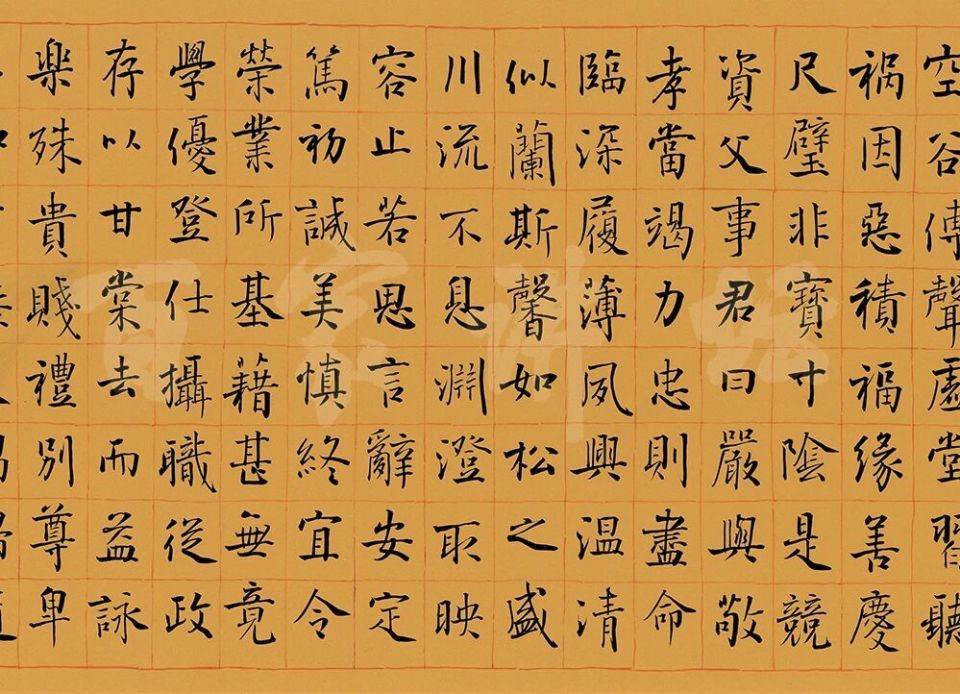 空谷傳聲虛堂習聽
禍因惡積福緣善慶
尺璧非寶寸陰是競
資父事君曰嚴與敬
孝當竭力忠則盡命
臨深履薄夙興温清
似蘭斯馨如松之盛
川流不息淵澄取映
容止若思言辭安定
篤初誠美慎終宜令
榮業所基籍甚無竟
學優登仕攝職從政
存以甘棠去而益詠
樂殊貴賤禮別尊卑
百家讲坛